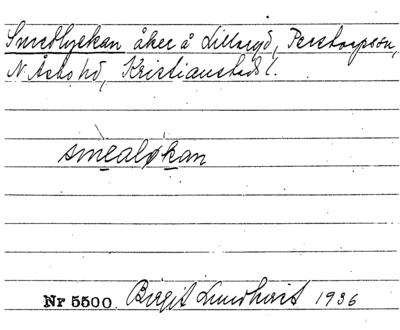 Smedlyckan åker å Lillaryd, Perstorpssn,
N. Åsbo hd, Kristianstads l.
smèalø̀kan
Nr 5500. Birgit Lundkvist 1936